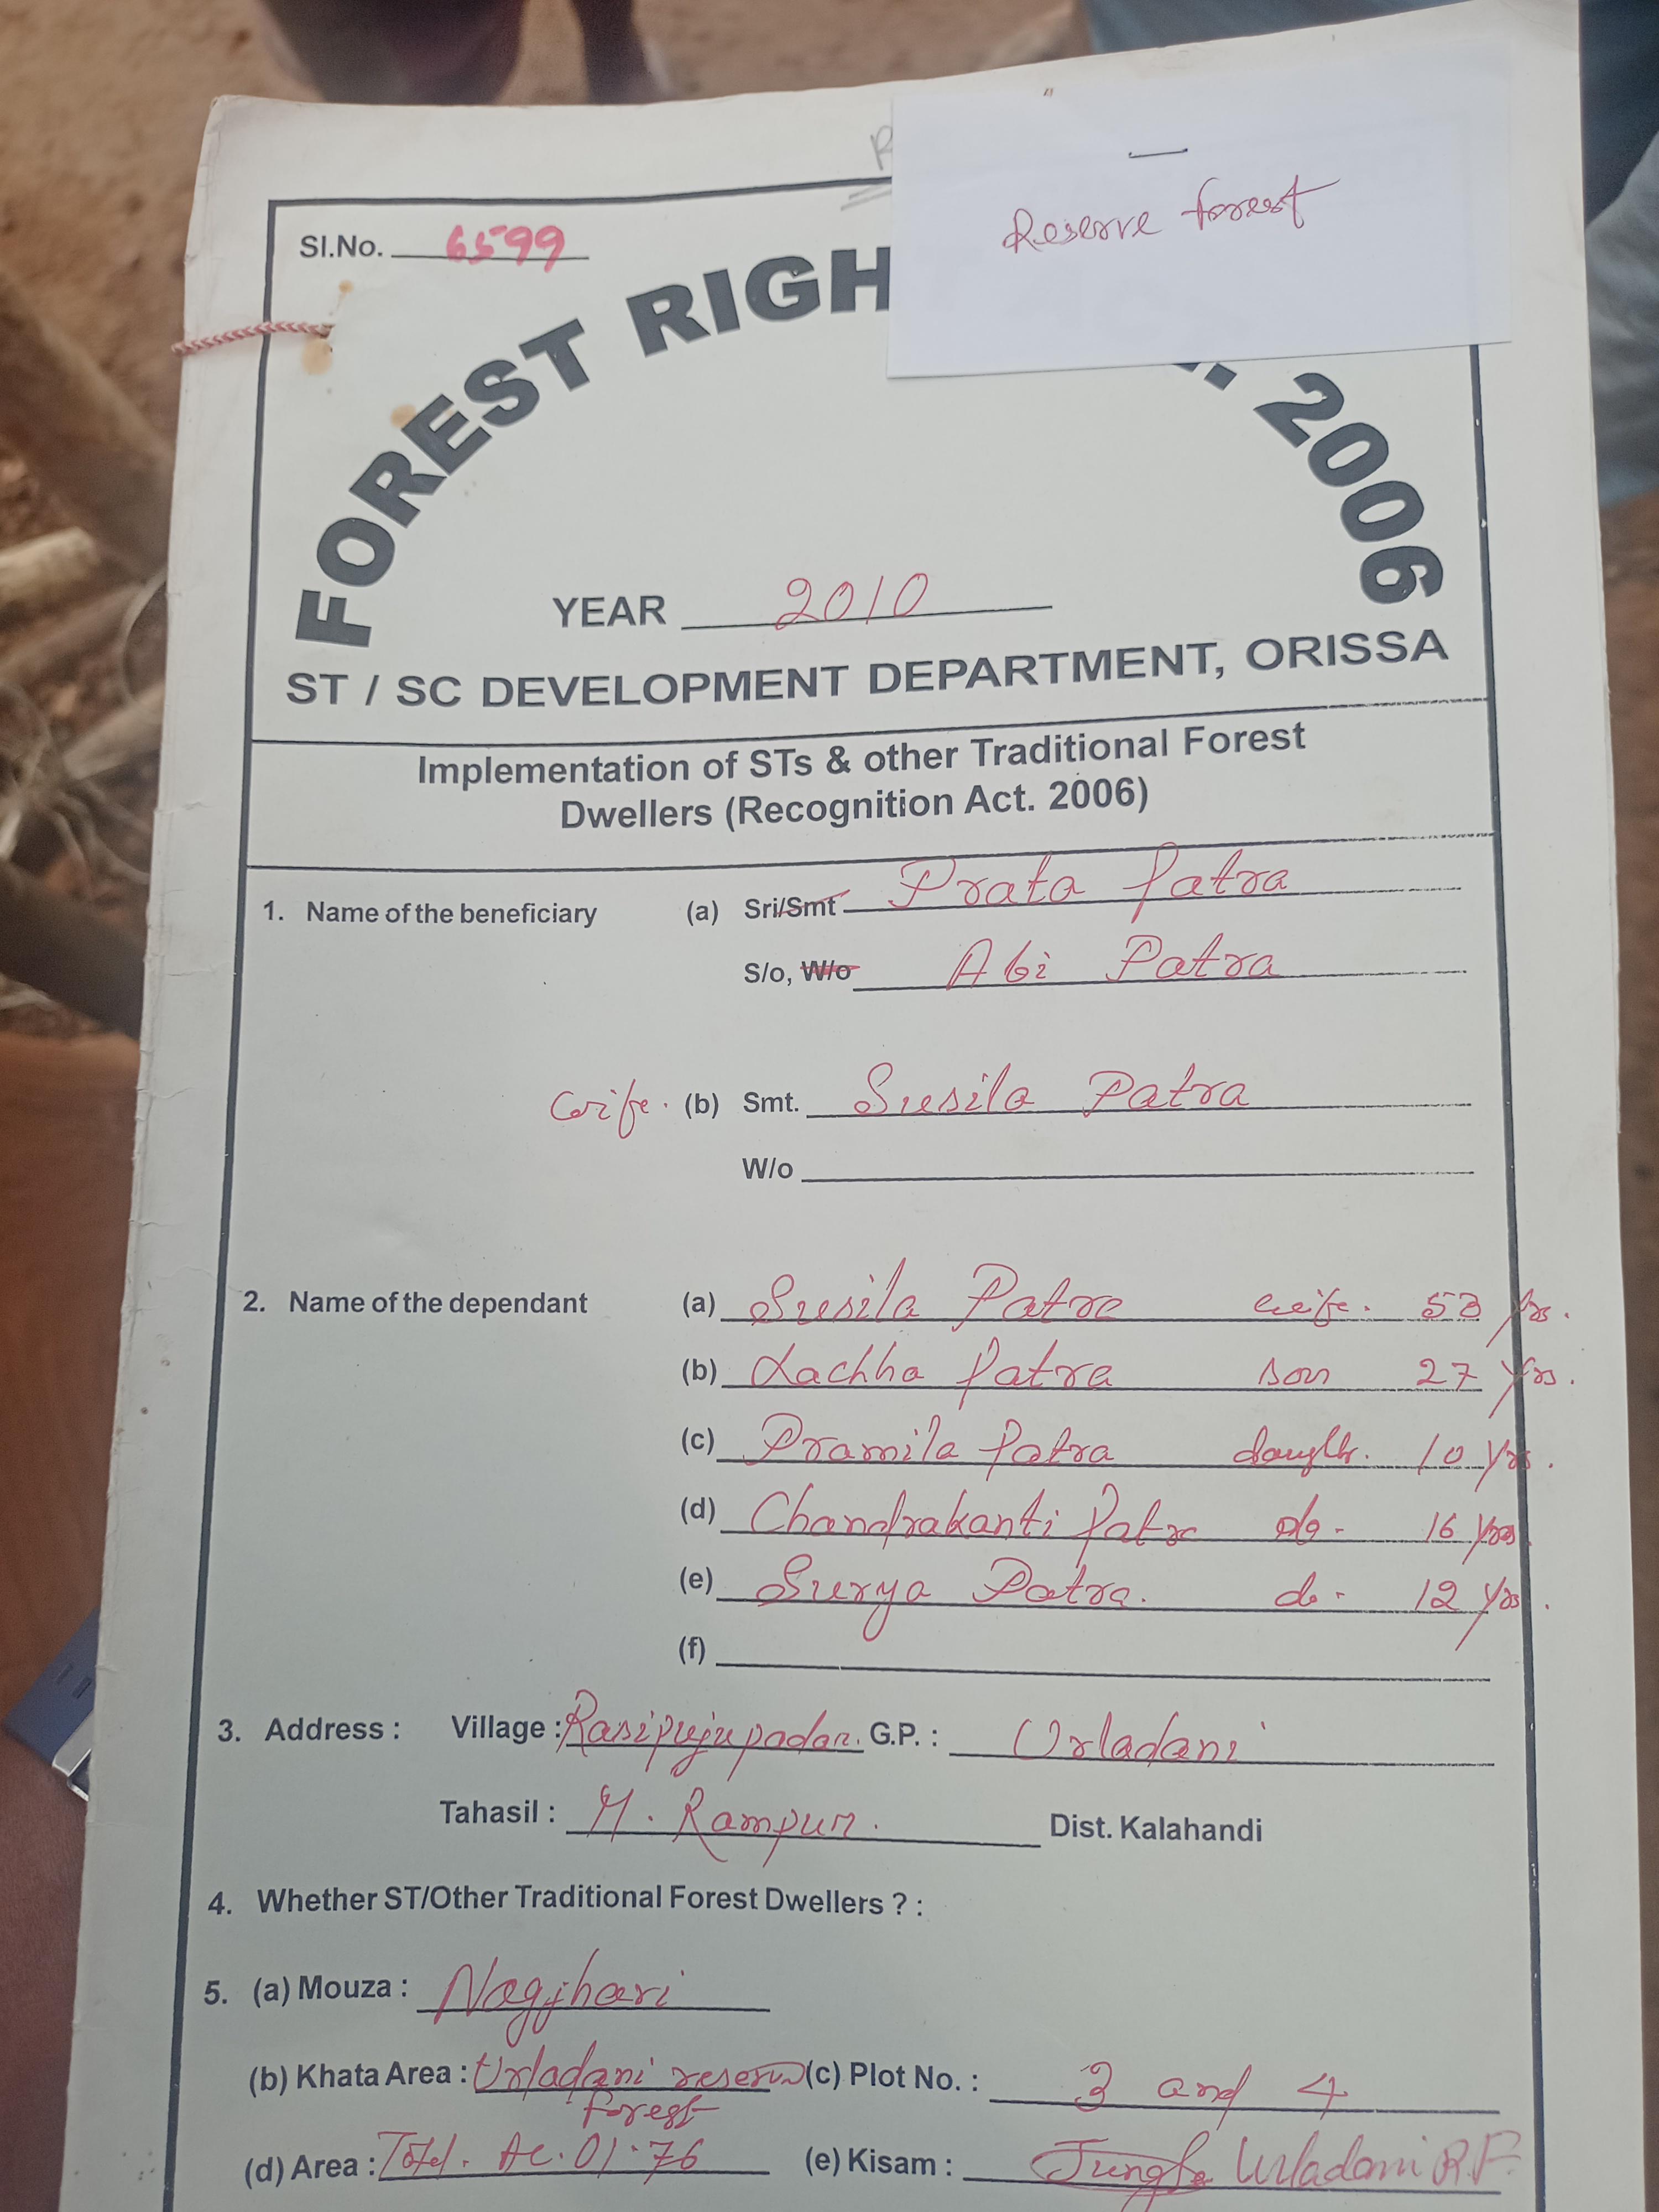 Reserve forest
Sl.No. 6599
FOREST RIGH 2006
YEAR 2010
ST / SC DEVELOPMENT DEPARTMENT, ORISSA
Implementation of STs & other Traditional Forest
Dwellers (Recognition Act. 2006)
1. Name of the beneficiary (a) Sri/Smt Prata Patra
S/o, W/o Abi Patra
wife. (b) Smt. Susila Patra
W/o
2. Name of the dependant (a) Susila Patra wife. 53 yrs.
(b) Lachha Patra son 27 yrs.
(c) Pramila Patra daughtr. 10 yrs.
(d) Chandrakanti Patra do - 16 yrs
(e) Surya Patra. do - 12 yrs.
(f)
3. Address : Village : Rasipujupadar. G.P. : Urladani
Tahasil : M. Rampur. Dist. Kalahandi
4. Whether ST/Other Traditional Forest Dwellers ? :
5. (a) Mouza : Nagjhari
(b) Khata Area : Urladani reserve (c) Plot No. : 3 and 4
forest
(d) Area : Total. Ac. 01.76 (e) Kisam : Jungle Urladani R.F.